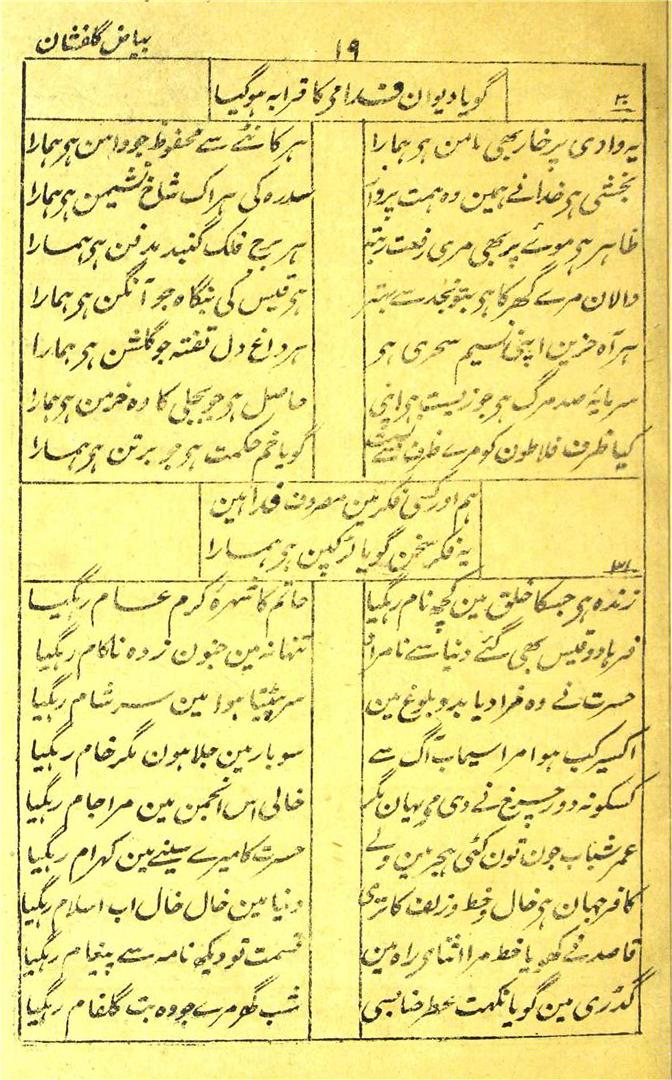 بیاض گلفشان
۱۹
گویا دیوان فدا می کا قرابہ ہو گیا
۳۰
یہ وادی پرخار بھی مامن ہو ہمارا ہر کانٹے سے محفوظ جو دامن ہو ہمارا
بخشی ہو خدا نے ہمین وہ ہمت پرواز سدرہ کی ہر اک شاخ نشیمن ہو ہمارا
ظاہر ہو موئے پر بھی مری رفعت رتبہ ہر برج فلک گنبد مدفن ہو ہمارا
دالان مرے گھر کا ہو بتو نجد سے بہتر ہو قیس کی بنگاہ جو آنگن ہو ہمارا
ہر آہ حزین اپنی نسیم سحری ہو ہر داغ دل تفتہ جو گلشن ہو ہمارا
سرمایہ صد مرگ ہو جو زیست ہو اپنی حاصل ہو جو بجلی کا وہ خرمن ہو ہمارا
کیا ظرف فلاطون کو مرے ظرف سے نسبت گویا خم حکمت ہو جو برتن ہو ہمارا
ہم اور کسی فکر مین مصروف فدا ہین
یہ فکر سخن گویا لڑکپن ہو ہمارا
۳۱
زندہ ہو جسکا خلق مین کچھ نام رہگیا حاتم کا شہرۂ کرم عام رہگیا
فرہاد و قیس بھی گئے دنیا سے نامراد تنہا نہ مین جنون زدہ ناکام رہگیا
حسرت نے وہ فراد یا بدو بلوغ مین سر پیٹتا ہوا مین سر شام رہگیا
اکسیر کب ہوا مرا سیماب آگ سے سو بار مین جلا ہون مگر خام رہگیا
کسکو نہ دور چرخ نے دی می یہان مگر خالی اس انجمن مین مرا جام رہگیا
عمر شباب جون تون کٹی ہجر مین ولے حسرت کا میرے سینے مین کہرام رہگیا
کافر جہان ہو خال و خط و زلف کا تری دنیا مین خال خال اب اسلام رہگیا
قاصد نے کھو یا خط مرا اثنای راہ مین قسمت تو دیکھ نامہ سے پیغام رہگیا
گذری مین گویا نکہت عطر حنا بسی شب گھر مرے جو وہ بت گلفام رہگیا